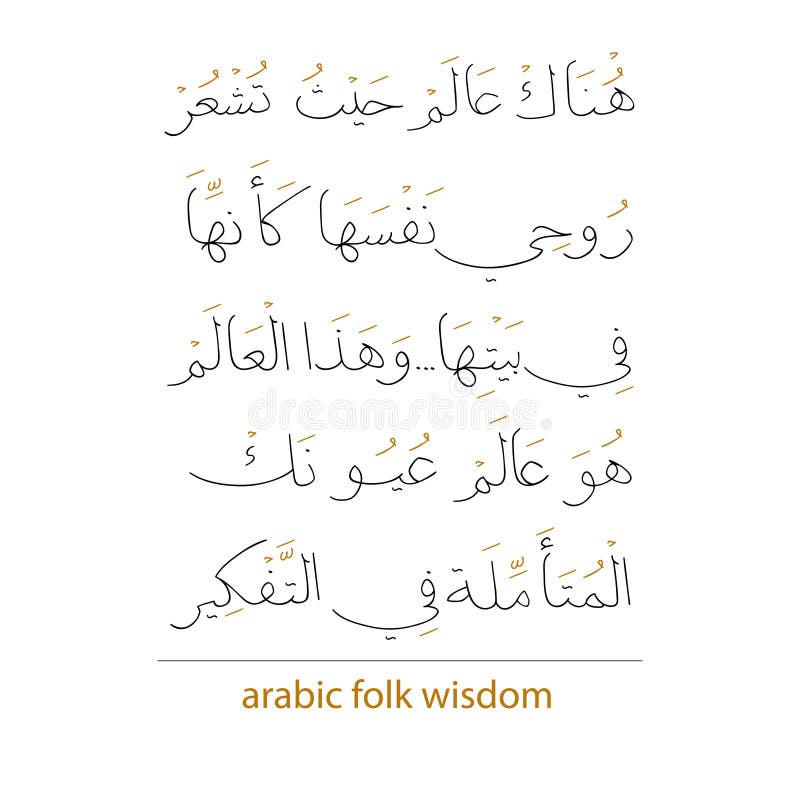 هُنَاكْ عَالَمْ حَيْثُ تُشْعُرْ
رُوحِي نَفْسَهَا كَأَنَّهَا
فِي بَيْتِهَا...وَهَذَا الْعَالَمْ
هُوَ عَالَمْ عُيُونَكْ
الْمُتَأَمِّلَة فِي التَّفْكِير
arabic folk wisdom
dreamstime